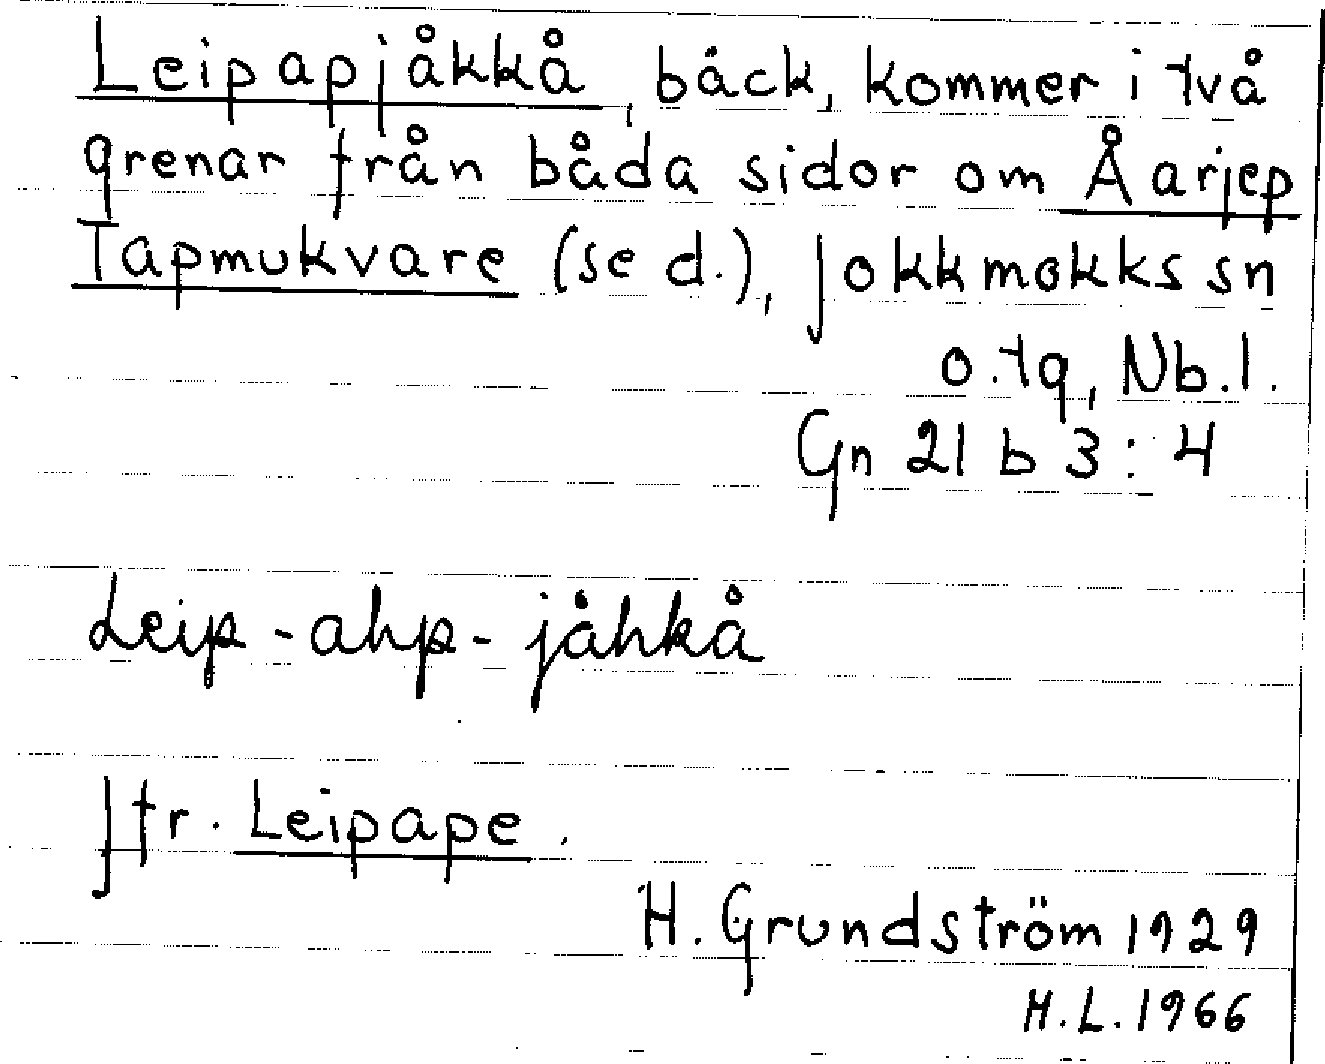 Leipapjåkkå, bäck, kommer i två
grenar från båda sidor om Åarjep
Tapmukvare (se d.), Jokkmokks sn
o. tg, Nb. l.
Gn 21 b 3 : 4
Leip - ahp - jåhkå
Jfr. Leipape.
H. Grundström 1929
H. L. 1966